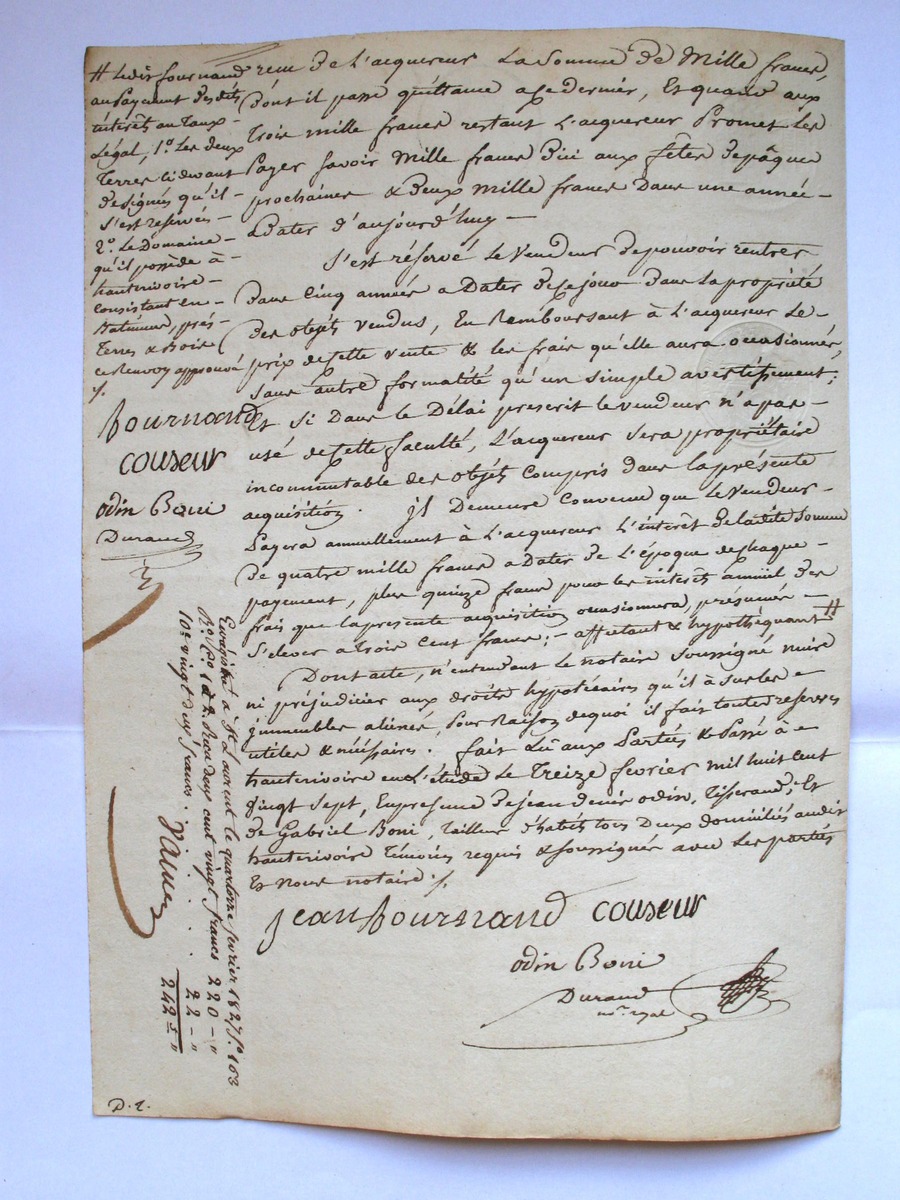 reçu de l'acquereur La Somme de Mille francs,
dont il passe quittance a ce dernier, Et quand aux
trois mille francs restant L'acquereur Promet les
Payer Savoir Mille francs D'ici aux fêtes de pâques
prochaines & deux mille francs Dans une année –
a Dater d'aujourd'huy –
S'est réservé le Vendeur de pouvoir rentrer
dans Cinq années a Dater de ce jour Dans la propriété
des objets vendus, En Remboursant à L'acquereur Le –
prix de cette vente & les frais qu'elle aura occasionnés,
sans autre formalité qu'un simple avertissement;
Et Si Dans le Délai prescrit le vendeur n'a pas –
usé de cette faculté, L'acquereur sera propriétaire
incommutable des objets Compris dans la présente
acquisition. Il Demeure Convenu que le Vendeur –
Payera annuellement à L'acquereur L'interêt de la dite Somme
de quatre mille francs a Dater de L'époque de chaque –
payement, plus quinze francs pour les interêts annuel des
frais que la presente acquisition occasionnera, présumés –
S'elever a trois Cent francs; – affectant & hypothéquant #
Dont acte, n'entendant Le notaire soussigné nuire
ni préjudicier aux droits hypotécaires qu'il à sur les –
immeubles aliénés, Pour Raison de quoi il fait toutes reserves
utiles & nécéssaires. fait Lû aux Parties & Passé à –
hauterivoire en L'étude Le Treize fevrier mil huit cent
vingt Sept, En presence de jean denis odin, Tisserand, Et
de Gabriel Boni, tailleur d'habits tous Deux domiciliés audit
hauterivoire témoins requis & soussignés avec Les parties
Et Nous notaire ./.
jean fournand couseur
odin Boni
Durand
no.re royal
# Ledit fournand
au Payement desdits
intérêts au Taux –
Légal, 1° Les deux
Terres ci devant
designés qu'il –
s'est reservés –
2° Le Domaine –
qu'il possède à –
hauterivoire –
Consistant en –
Batiments, prés –
Terres & Bois
ce Renvoy approuvé
./.
fournand
couseur
odin Boni
Durand
Enregistré à St. Laurent le quatorze fevrier 1827 f° 103
Reçu deux cent vingt francs 220 – "
10e vingt deux francs . . . . 22 – "
242 f "
D. 2.